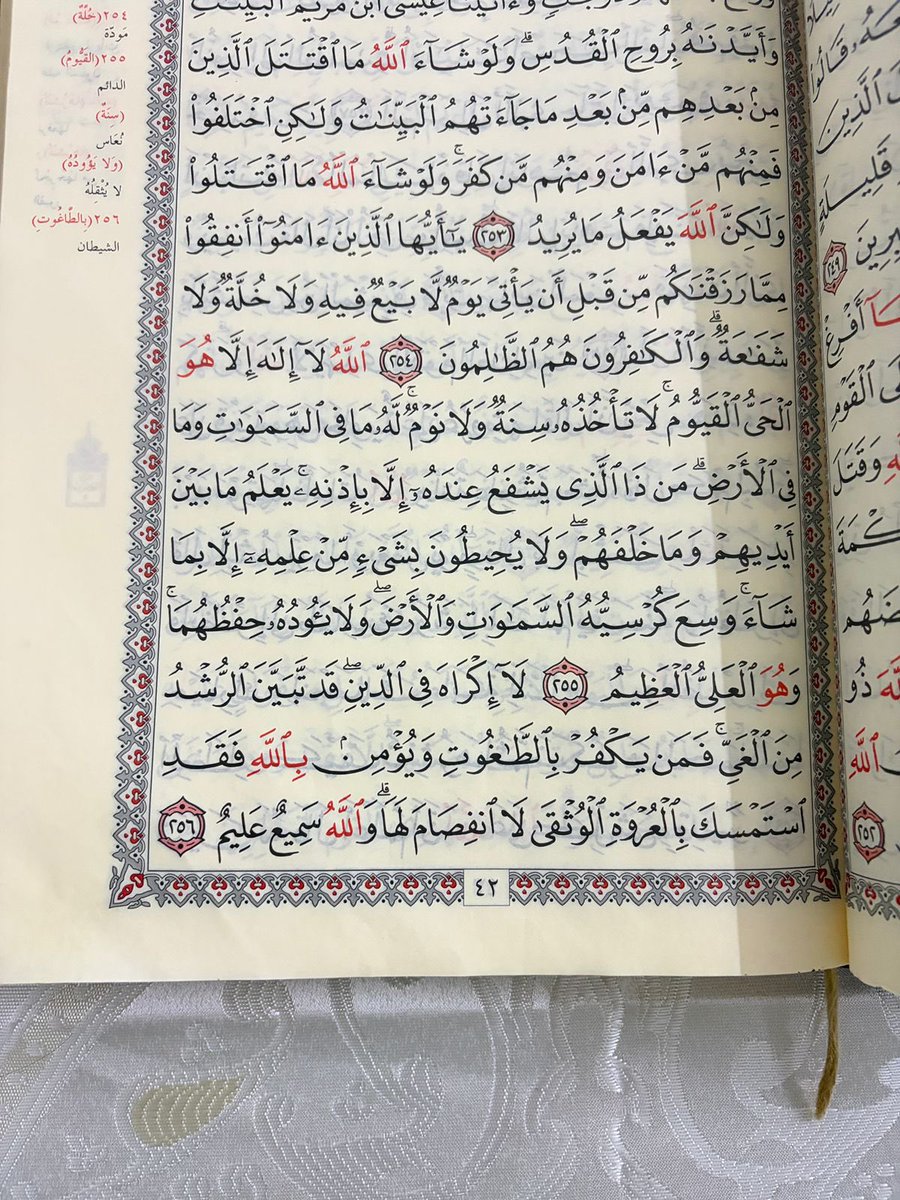 وَأَيَّدْنَٰهُ بِرُوحِ الْقُدُسِ ۗ وَلَوْ شَآءَ اللَّهُ مَا اقْتَتَلَ الَّذِينَ
مِنۢ بَعْدِهِم مِّنۢ بَعْدِ مَا جَآءَتْهُمُ الْبَيِّنَٰتُ وَلَٰكِنِ اخْتَلَفُوا۟
فَمِنْهُم مَّنْ ءَامَنَ وَمِنْهُم مَّن كَفَرَ ۚ وَلَوْ شَآءَ اللَّهُ مَا اقْتَتَلُوا۟
وَلَٰكِنَّ اللَّهَ يَفْعَلُ مَا يُرِيدُ ٢٥٣ يَٰٓأَيُّهَا الَّذِينَ ءَامَنُوٓا۟ أَنفِقُوا۟
مِمَّا رَزَقْنَٰكُم مِّن قَبْلِ أَن يَأْتِىَ يَوْمٌ لَّا بَيْعٌ فِيهِ وَلَا خُلَّةٌ وَلَا
شَفَٰعَةٌ ۗ وَالْكَٰفِرُونَ هُمُ الظَّٰلِمُونَ ٢٥٤ اللَّهُ لَآ إِلَٰهَ إِلَّا هُوَ
الْحَىُّ الْقَيُّومُ ۚ لَا تَأْخُذُهُۥ سِنَةٌ وَلَا نَوْمٌ ۚ لَّهُۥ مَا فِى السَّمَٰوَٰتِ وَمَا
فِى الْأَرْضِ ۗ مَن ذَا الَّذِى يَشْفَعُ عِندَهُۥٓ إِلَّا بِإِذْنِهِۦ ۚ يَعْلَمُ مَا بَيْنَ
أَيْدِيهِمْ وَمَا خَلْفَهُمْ ۖ وَلَا يُحِيطُونَ بِشَىْءٍ مِّنْ عِلْمِهِۦٓ إِلَّا بِمَا
شَآءَ ۚ وَسِعَ كُرْسِيُّهُ السَّمَٰوَٰتِ وَالْأَرْضَ ۖ وَلَا يَـُٔودُهُۥ حِفْظُهُمَا ۚ
وَهُوَ الْعَلِىُّ الْعَظِيمُ ٢٥٥ لَآ إِكْرَاهَ فِى الدِّينِ ۖ قَد تَّبَيَّنَ الرُّشْدُ
مِنَ الْغَىِّ ۚ فَمَن يَكْفُرْ بِالطَّٰغُوتِ وَيُؤْمِنۢ بِاللَّهِ فَقَدِ
اسْتَمْسَكَ بِالْعُرْوَةِ الْوُثْقَىٰ لَا انفِصَامَ لَهَا ۗ وَاللَّهُ سَمِيعٌ عَلِيمٌ ٢٥٦
٤٢
٢٥٤ (خُلَّةٌ)
مَوَدّة
٢٥٥ (القَيُّومُ)
الدائم
(سِنَةٌ)
نُعَاس
(وَلا يَؤُودُهُ)
لا يُثْقِلُهُ
٢٥٦ (بِالطّاغُوتِ)
الشيطان
قَالُوا
الَّذِينَ
قَلِيلَةٍ
٢٤٩
أَفْرِغْ
الْقَوْمِ
وَقَتَلَ
ذُو
اللَّهِ
٢٥٢